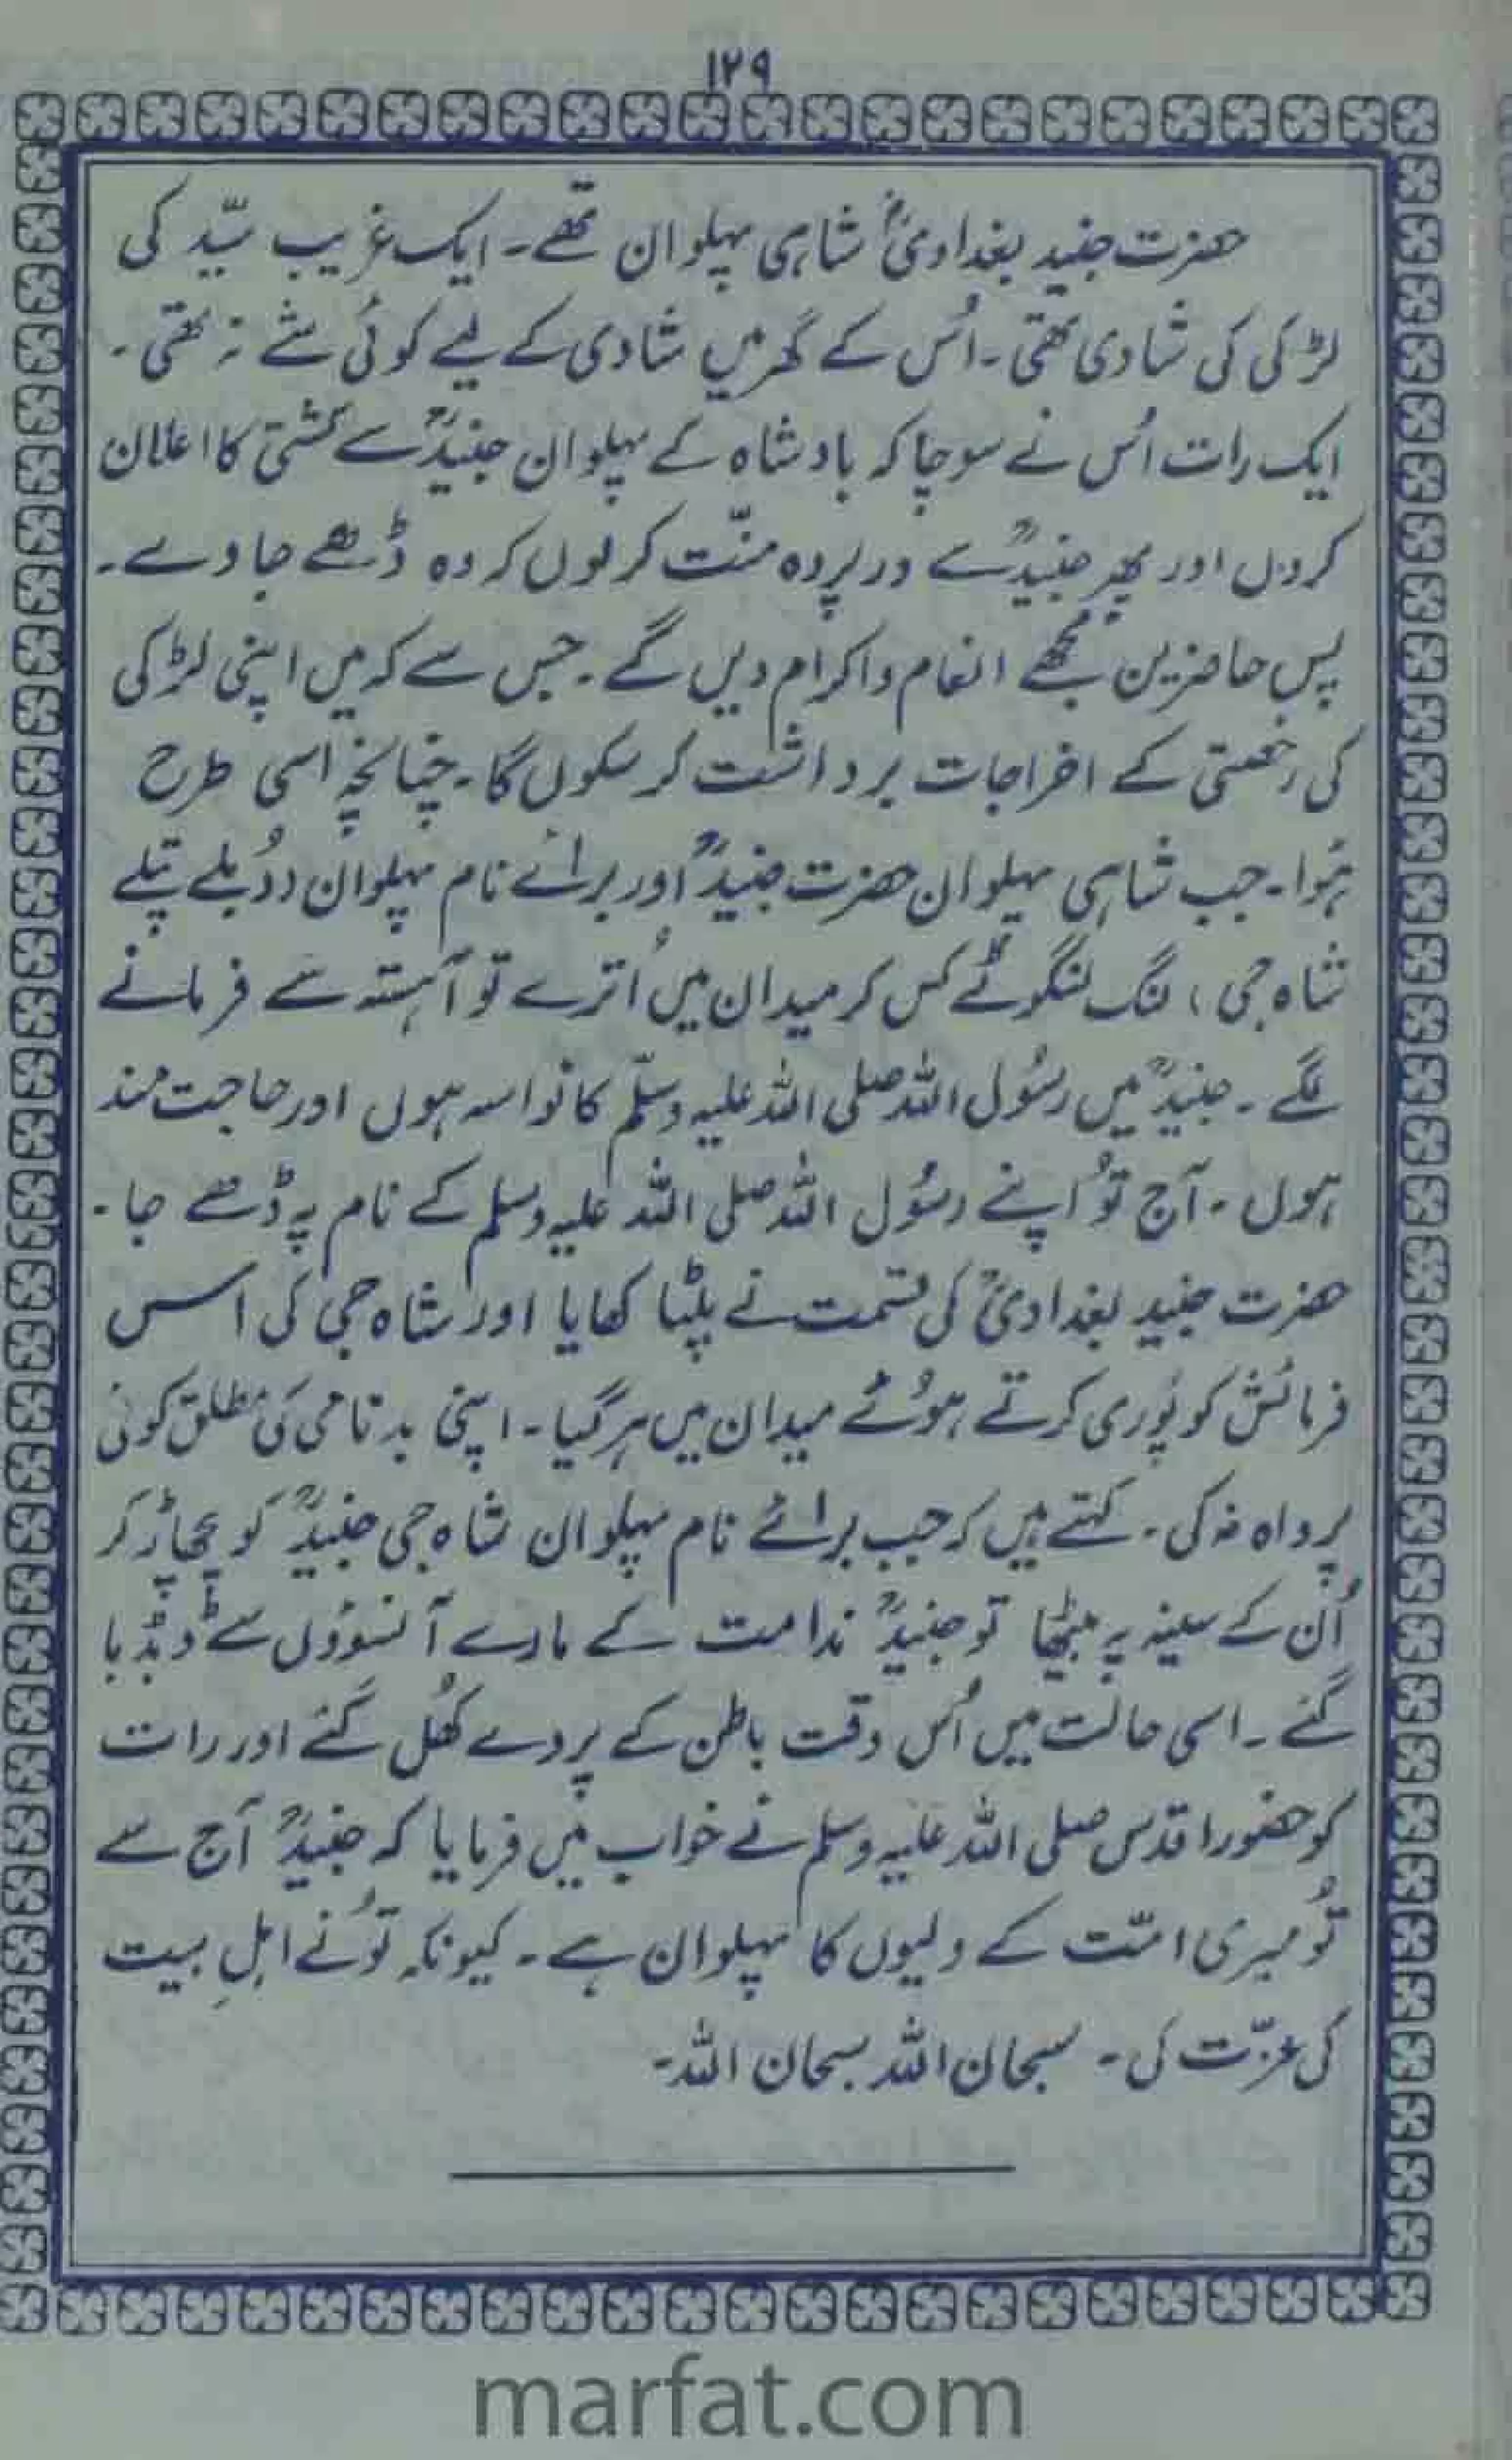 ۱۲۹
حضرت جنید بغدادیؒ شاہی پہلوان تھے۔ ایک غریب سیّد کی
لڑکی کی شادی تھی۔ اُس کے گھر میں شادی کے لیے کوئی شے نہ تھی۔
ایک رات اُس نے سوچا کہ بادشاہ کے پہلوان جنیدؒ سے کُشتی کا اعلان
کر دوں اور پھر جنیدؒ سے در پردہ منّت کر لوں کہ وہ ڈھے جاوے۔
پس حاضرین مجھے انعام و اکرام دیں گے۔ جس سے کہ میں اپنی لڑکی
کی رخصتی کے اخراجات برداشت کر سکوں گا۔ چنانچہ اسی طرح
ہُوا۔ جب شاہی پہلوان حضرت جنیدؒ اور برائے نام پہلوان (دُبلے پتلے
شاہ جی) لنگ لنگوٹے کس کر میدان میں اُترے تو آہستہ سے فرمانے
لگے۔ جنیدؒ میں رسُول اللہ صلی اللہ علیہ وسلّم کا نواسہ ہوں اور حاجت مند
ہوں۔ آج تُو اپنے رسُول اللہ صلی اللہ علیہ وسلم کے نام پہ ڈھے جا۔
حضرت جنید بغدادیؒ کی قسمت نے پلٹا کھایا اور شاہ جی کی اس
فرمائش کو پُوری کرتے ہُوئے میدان میں ہر گیا۔ اپنی بدنامی کی مطلق کوئی
پرواہ نہ کی۔ کہتے ہیں کہ جب برائے نام پہلوان شاہ جی جنیدؒ کو پچھاڑ کر
اُن کے سینہ پہ بیٹھا تو جنیدؒ ندامت کے مارے آنسوؤں سے ڈبڈبا
گئے۔ اسی حالت میں اُس وقت باطن کے پردے کھُل گئے اور رات
کو حضور اقدس صلی اللہ علیہ وسلم نے خواب میں فرمایا کہ جنیدؒ آج سے
تُو میری امّت کے ولیوں کا پہلوان ہے۔ کیونکہ تُو نے اہلِ بیت
کی عزّت کی۔ سبحان اللہ سبحان اللہ۔
marfat.com